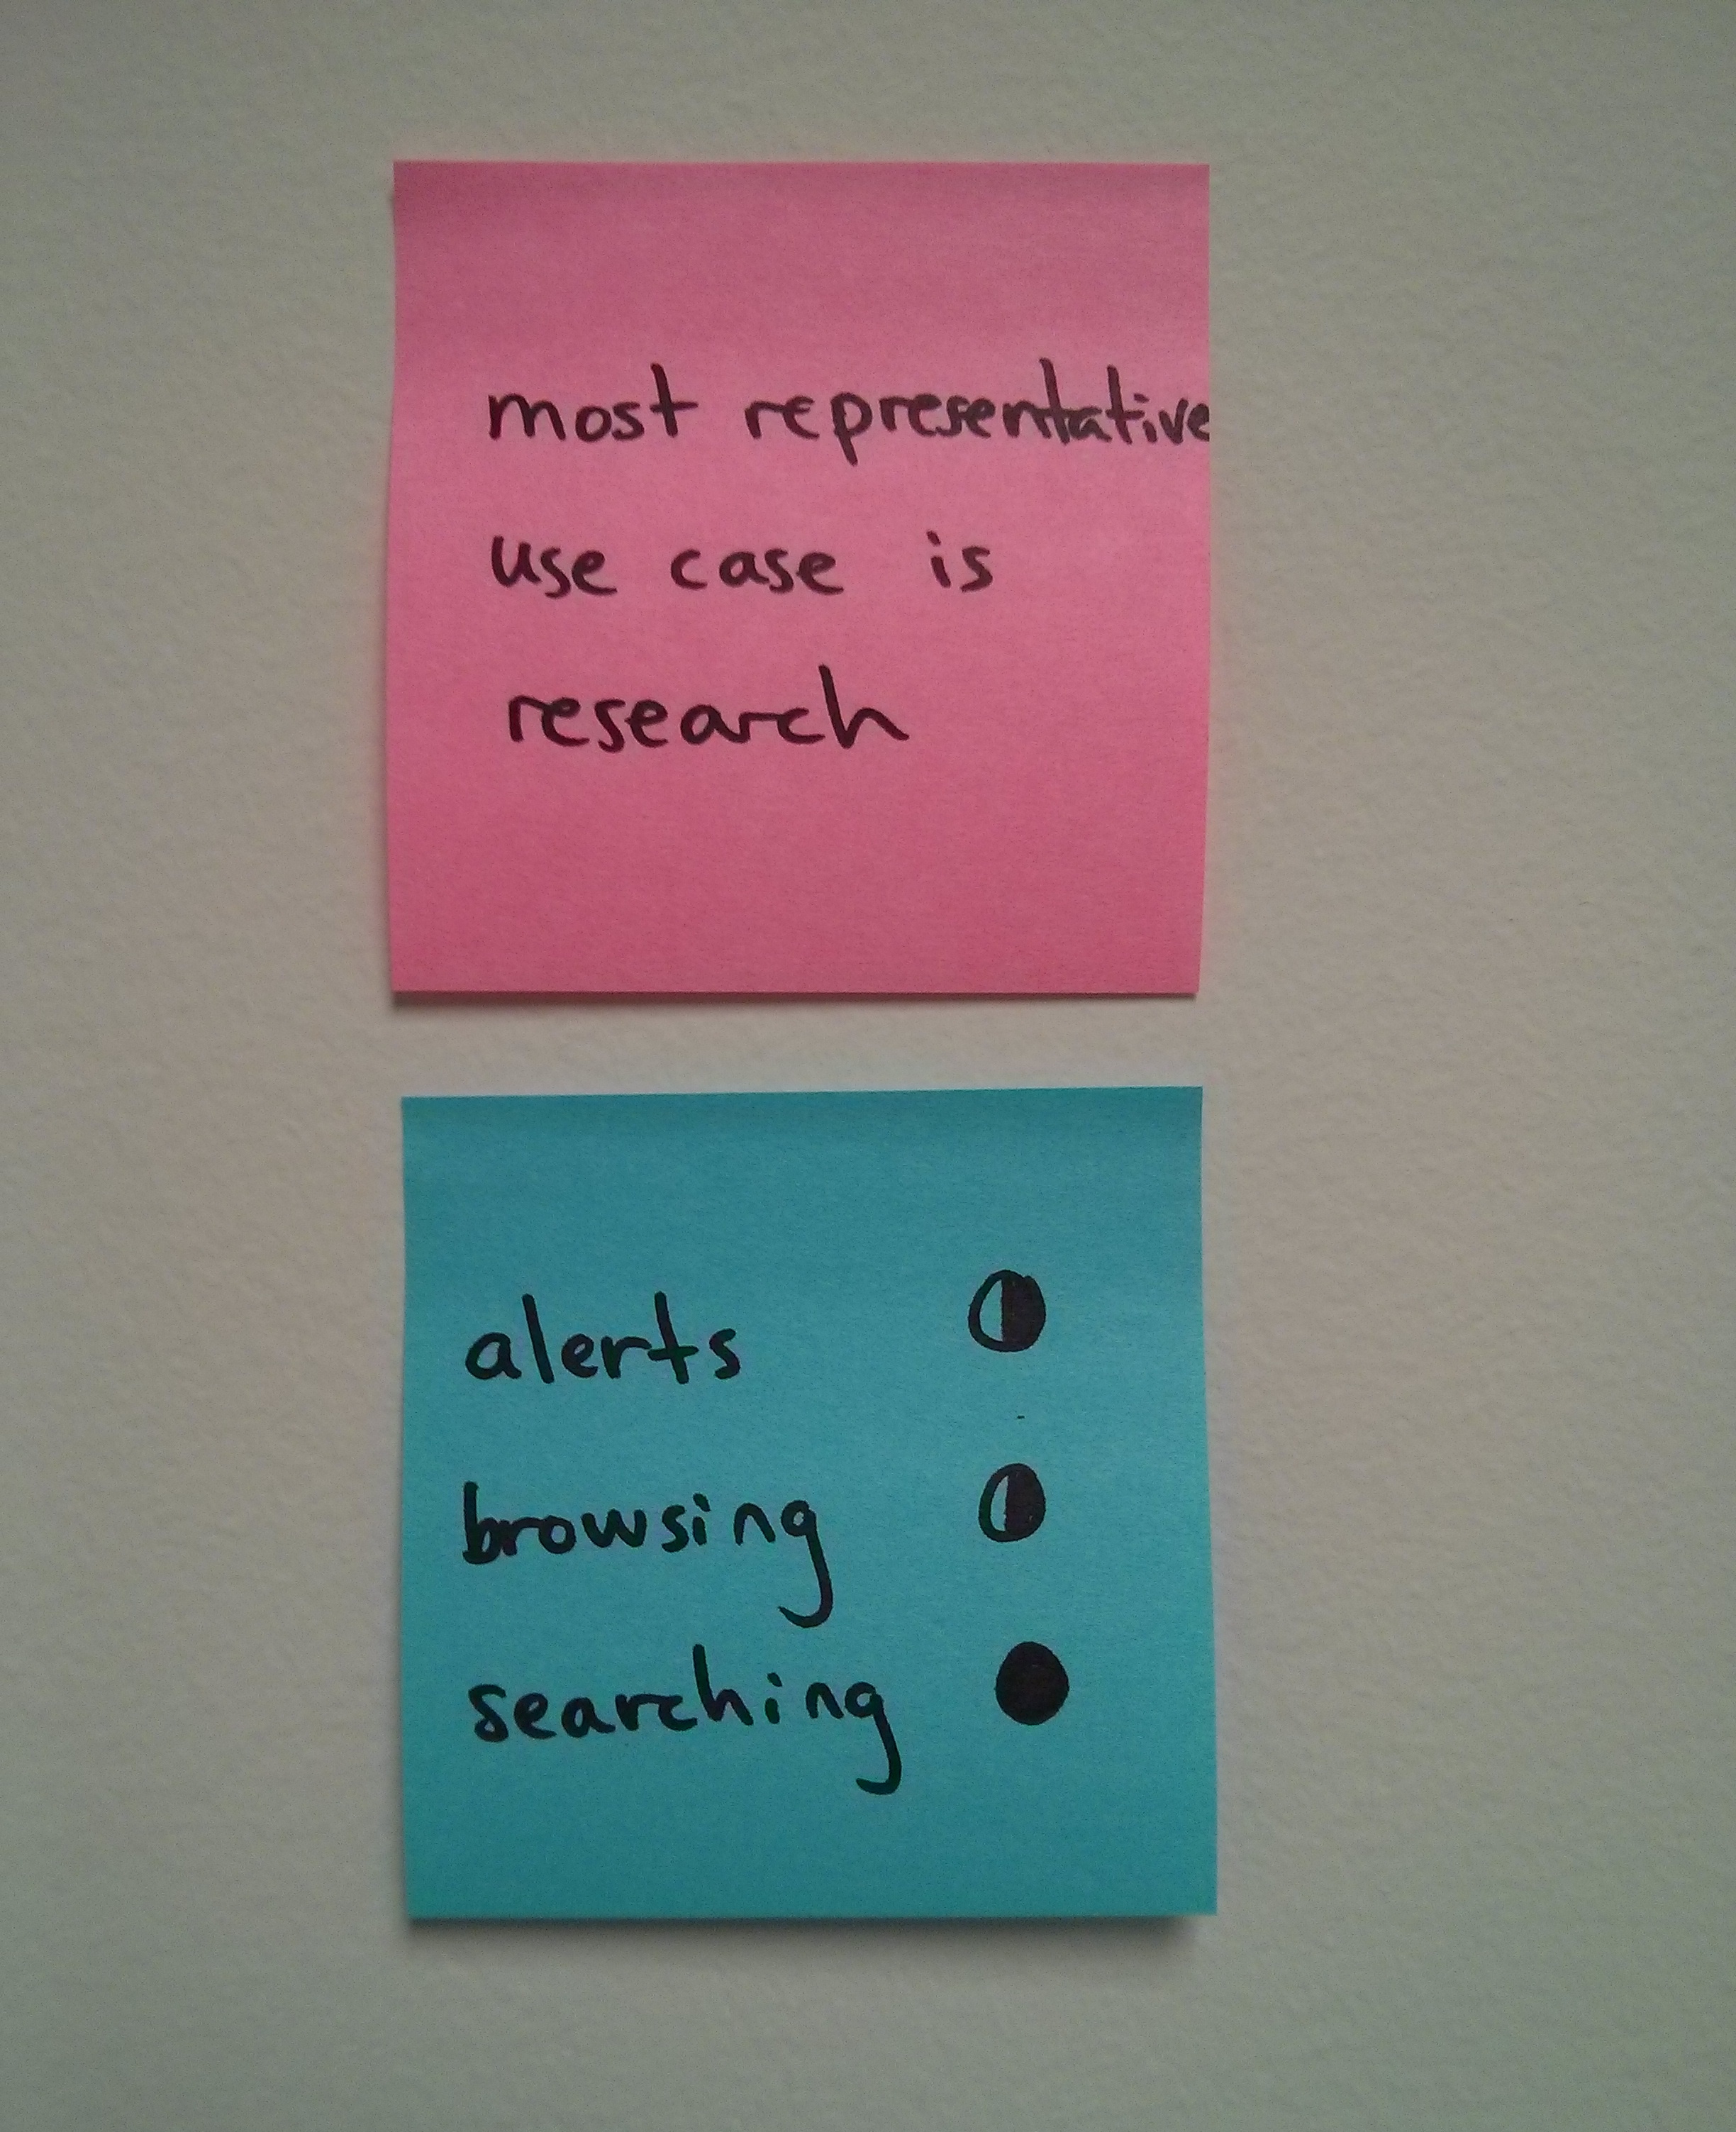 most representative
use case is
research
alerts
browsing
searching